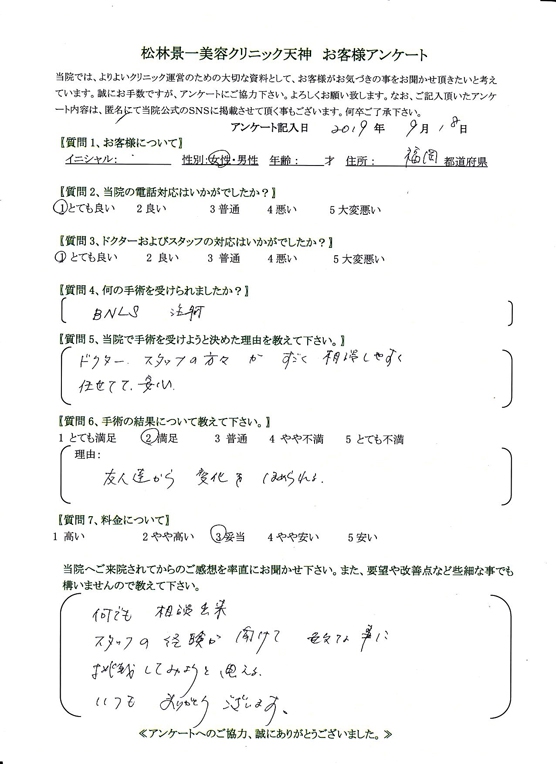 松林景一美容クリニック天神 お客様アンケート
当院では、よりよいクリニック運営のための大切な資料として、お客様がお気づきの事をお聞かせ頂きたいと考え
ています。誠にお手数ですが、アンケートにご協力下さい。よろしくお願い致します。なお、ご記入頂いたアンケ
ート内容は、匿名にて当院公式のSNSに掲載させて頂く事もございます。何卒ご了承下さい。
アンケート記入日 2019 年 9 月 18 日
〖質問1、お客様について〗
イニシャル: 性別:女性・男性 年齢: 才 住所: 福岡 都道府県
〖質問2、当院の電話対応はいかがでしたか?〗
1 とても良い 2 良い 3 普通 4 悪い 5 大変悪い
〖質問3、ドクターおよびスタッフの対応はいかがでしたか?〗
1 とても良い 2 良い 3 普通 4 悪い 5 大変悪い
〖質問4、何の手術を受けられましたか?〗
BNLS 注射
〖質問5、当院で手術を受けようと決めた理由を教えて下さい。〗
ドクター、スタッフの方々が すごく 相談しやすく
任せてて、安い、
〖質問6、手術の結果について教えて下さい。〗
1 とても満足 2 満足 3 普通 4 やや不満 5 とても不満
理由:
友人達から 変化を ほめられる。
〖質問7、料金について〗
1 高い 2 やや高い 3 妥当 4 やや安い 5 安い
当院へご来院されてからのご感想を率直にお聞かせ下さい。また、要望や改善点など些細な事でも
構いませんので教えて下さい。
何でも 相談出来
スタッフの 経験が 聞けて 事に
挑戦してみようと思える。
いつも ありがとう ございます。
≪アンケートへのご協力、誠にありがとうございました。≫